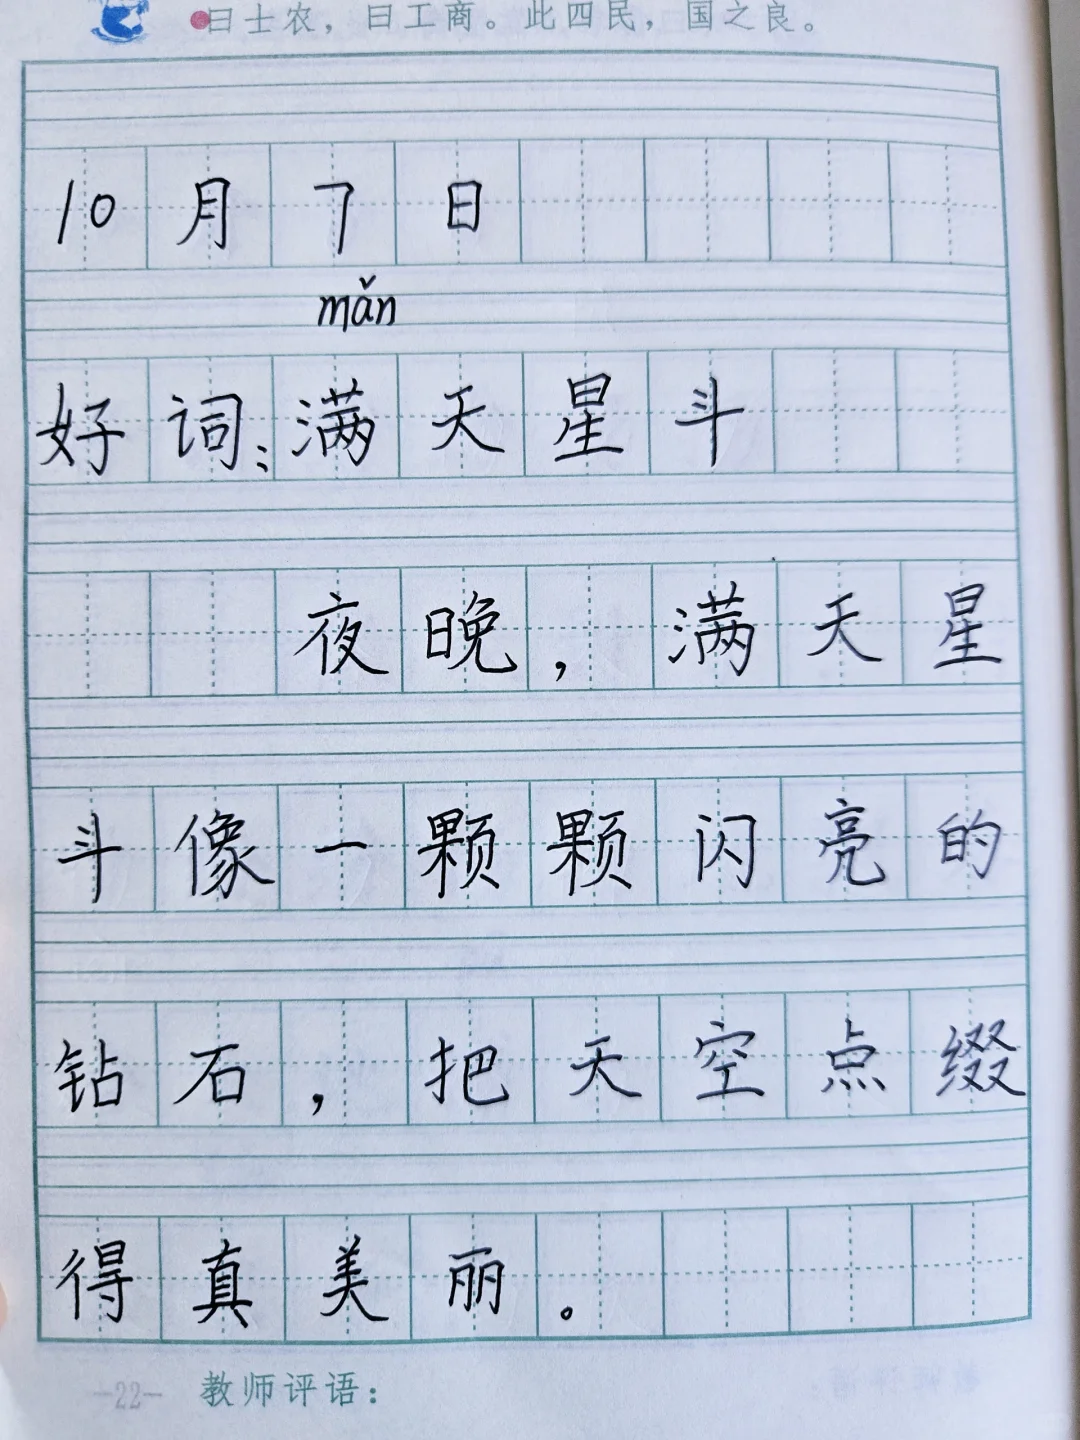 曰士农，曰工商。此四民，国之良。
10月7日
mǎn
好词：满天星斗
夜晚，满天星
斗像一颗颗闪亮的
钻石，把天空点缀
得真美丽。
—22— 教师评语：